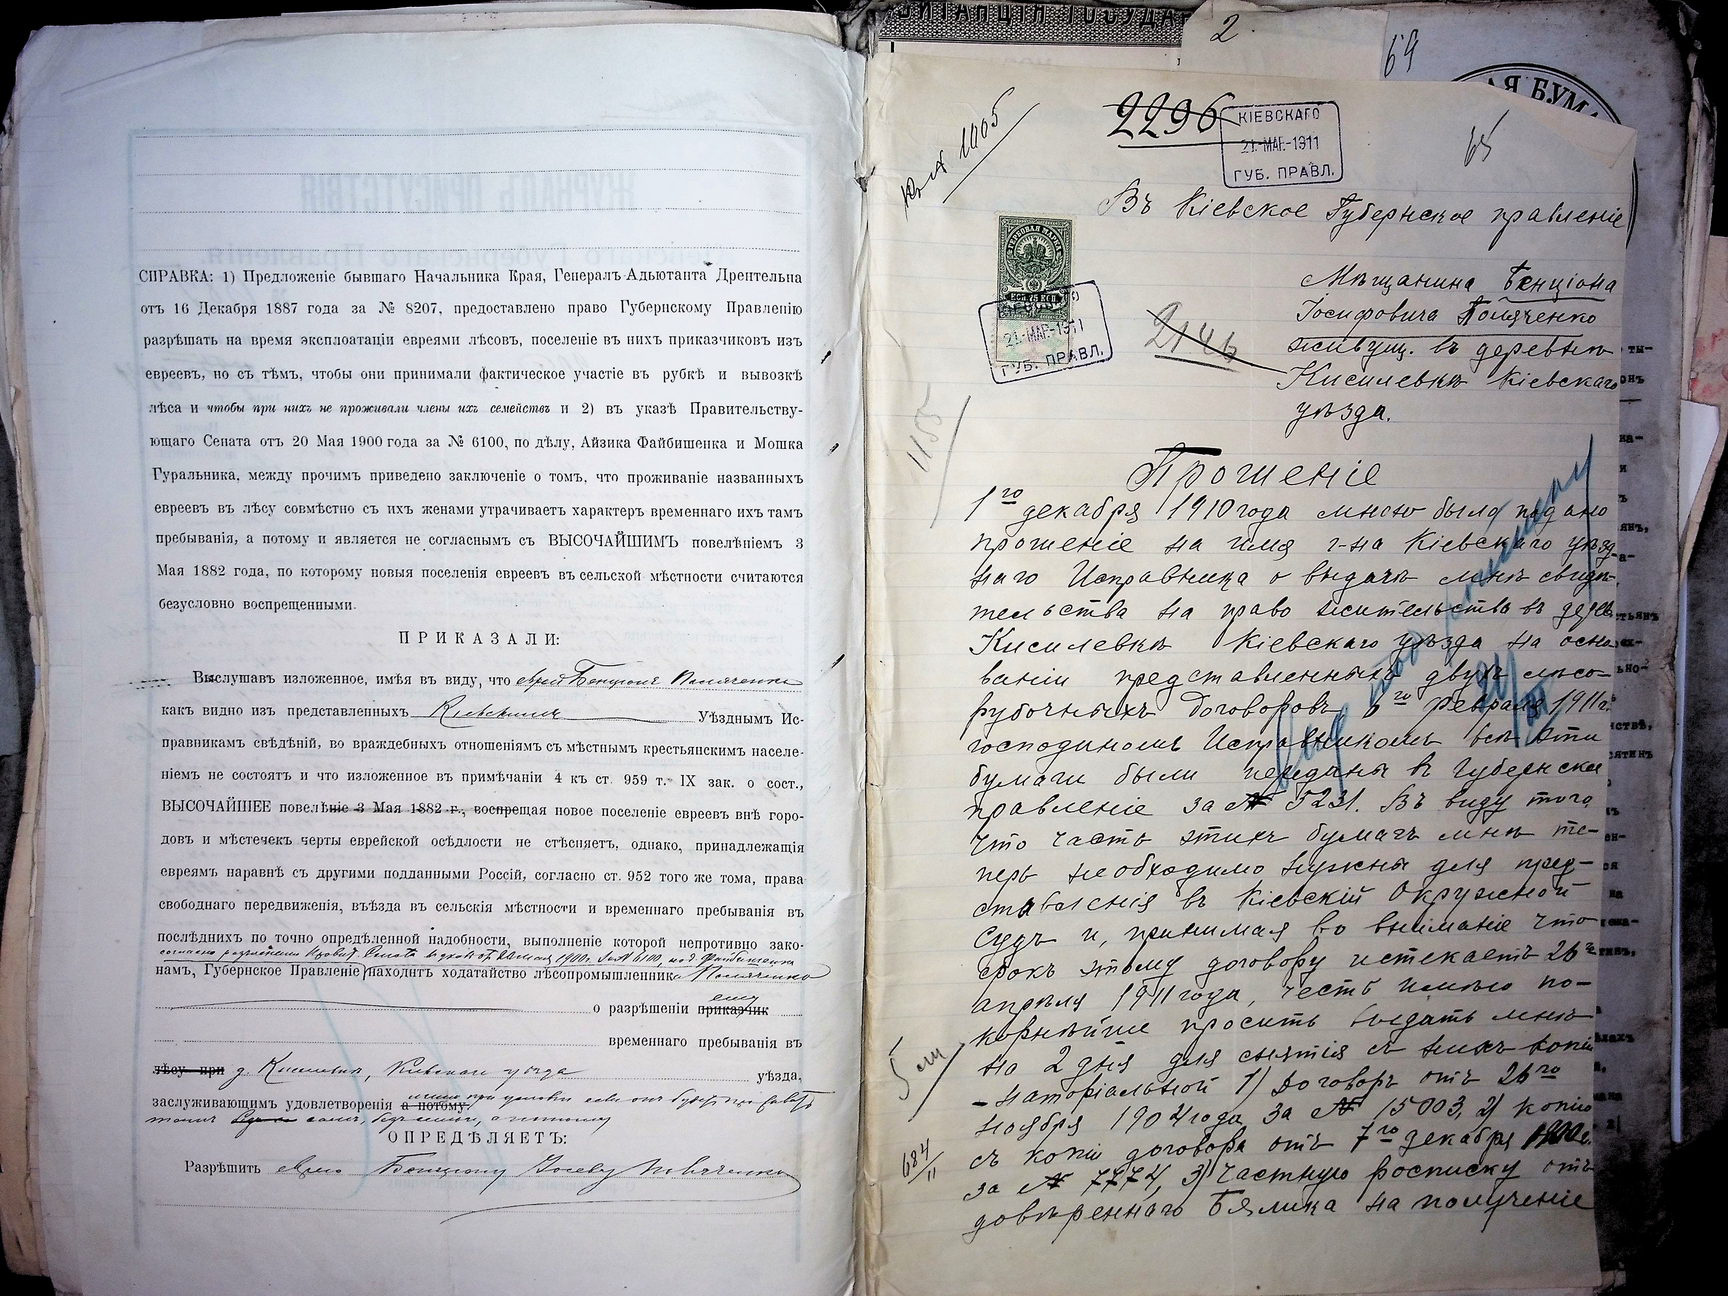 СПРАВКА: 1) Предложеніе бывшаго Начальника Края, Генералъ-Адьютанта Дрентельна
отъ 16 Декабря 1887 года за № 8207, предоставлено право Губернскому Правленію
разрѣшать на время эксплоатаціи евреями лѣсовъ, поселеніе въ нихъ приказчиковъ изъ
евреевъ, но съ тѣмъ, чтобы они принимали фактическое участіе въ рубкѣ и вывозкѣ
лѣса и чтобы при нихъ не проживали члены ихъ семействъ и 2) въ указѣ Правительству-
ющаго Сената отъ 20 Мая 1900 года за № 6100, по дѣлу, Айзика Файбишенка и Мошка
Гуральника, между прочимъ приведено заключеніе о томъ, что проживаніе названныхъ
евреевъ въ лѣсу совмѣстно съ ихъ женами утрачиваетъ характеръ временнаго ихъ тамъ
пребыванія, а потому и является не согласнымъ съ ВЫСОЧАЙШИМЪ повелѣніемъ 3
Мая 1882 года, по которому новыя поселенія евреевъ въ сельской мѣстности считаются
безусловно воспрещенными.
ПРИКАЗАЛИ:
Выслушавъ изложенное, имѣя въ виду, что еврей Бенціонъ Поляченко
какъ видно изъ представленныхъ Кіевскимъ Уѣзднымъ Ис-
правникамъ свѣдѣній, во враждебныхъ отношеніямъ съ мѣстнымъ крестьянскимъ населе-
ніемъ не состоятъ и что изложенное въ примѣчаніи 4 къ ст. 959 т. IX зак. о сост.,
ВЫСОЧАЙШЕЕ повелѣніе 3 Мая 1882 г., воспрещая новое поселеніе евреевъ внѣ горо-
довъ и мѣстечекъ черты еврейской осѣдлости не стѣсняетъ, однако, принадлежащія
евреямъ наравнѣ съ другими подданными Россій, согласно ст. 952 того же тома, права
свободнаго передвиженія, въѣзда въ сельскія мѣстности и временнаго пребыванія въ
послѣднихъ по точно опредѣленной надобности, выполненіе которой непротивно зако-
намъ, Губернское Правленіе находитъ ходатайство лѣсопромышленника Поляченко
о разрѣшеніи ему приказчик
временнаго пребыванія въ
лѣсу при д. Кисилевкѣ, Кіевскаго уѣзда уѣзда,
заслуживающимъ удовлетворенія а потому
ОПРЕДѢЛЯЕТЪ:
Разрѣшить еврею Бенціону Іосеву Поляченко
2
64
АЯ БУМА
2296
КІЕВСКАГО
21-МАР.-1911
ГУБ. ПРАВЛ.
65
1005
Въ Кіевское Губернское правленіе
21-МАР-1911
ГУБ. ПРАВЛ.
2146
Мѣщанина Бенціона
Іосифовича Поляченко
живущ. въ деревнѣ
Кисилевкѣ Кіевскаго
уѣзда.
1155
Прошеніе
1го декабря 1910 года мною было подано
прошеніе на имя г-на Кіевскаго уѣзд
наго Исправника о выдачѣ мнѣ свидѣ
тельства на право жительства въ дерев
Кисилевкѣ Кіевскаго уѣзда на осно
ваніи представленныхъ двухъ лѣсо-
рубочныхъ договоровъ го февраля 1911 г.
господиномъ Исправникомъ всѣ эти
бумаги были переданы въ губернское
правленіе за № 5231. Въ виду того
что часть этихъ бумагъ мнѣ те-
перь необходимо нужны для пред-
ставленія въ Кіевскій Окружной
Судъ и, принимая во вниманіе что
срокъ этому договору истекаетъ 26го
апрѣля 1911 года, честь имѣю по-
корнѣйше просить выдать мнѣ
на 2 дня для снятія съ нихъ копіи
-нотаріальной 1) Договоръ отъ 26го
ноября 1904 года за № 15003, 2) копію
съ копіи договора отъ 7го декабря
за № 7774, 3) частную росписку отъ
довѣреннаго Бялика на полученіе
684/11